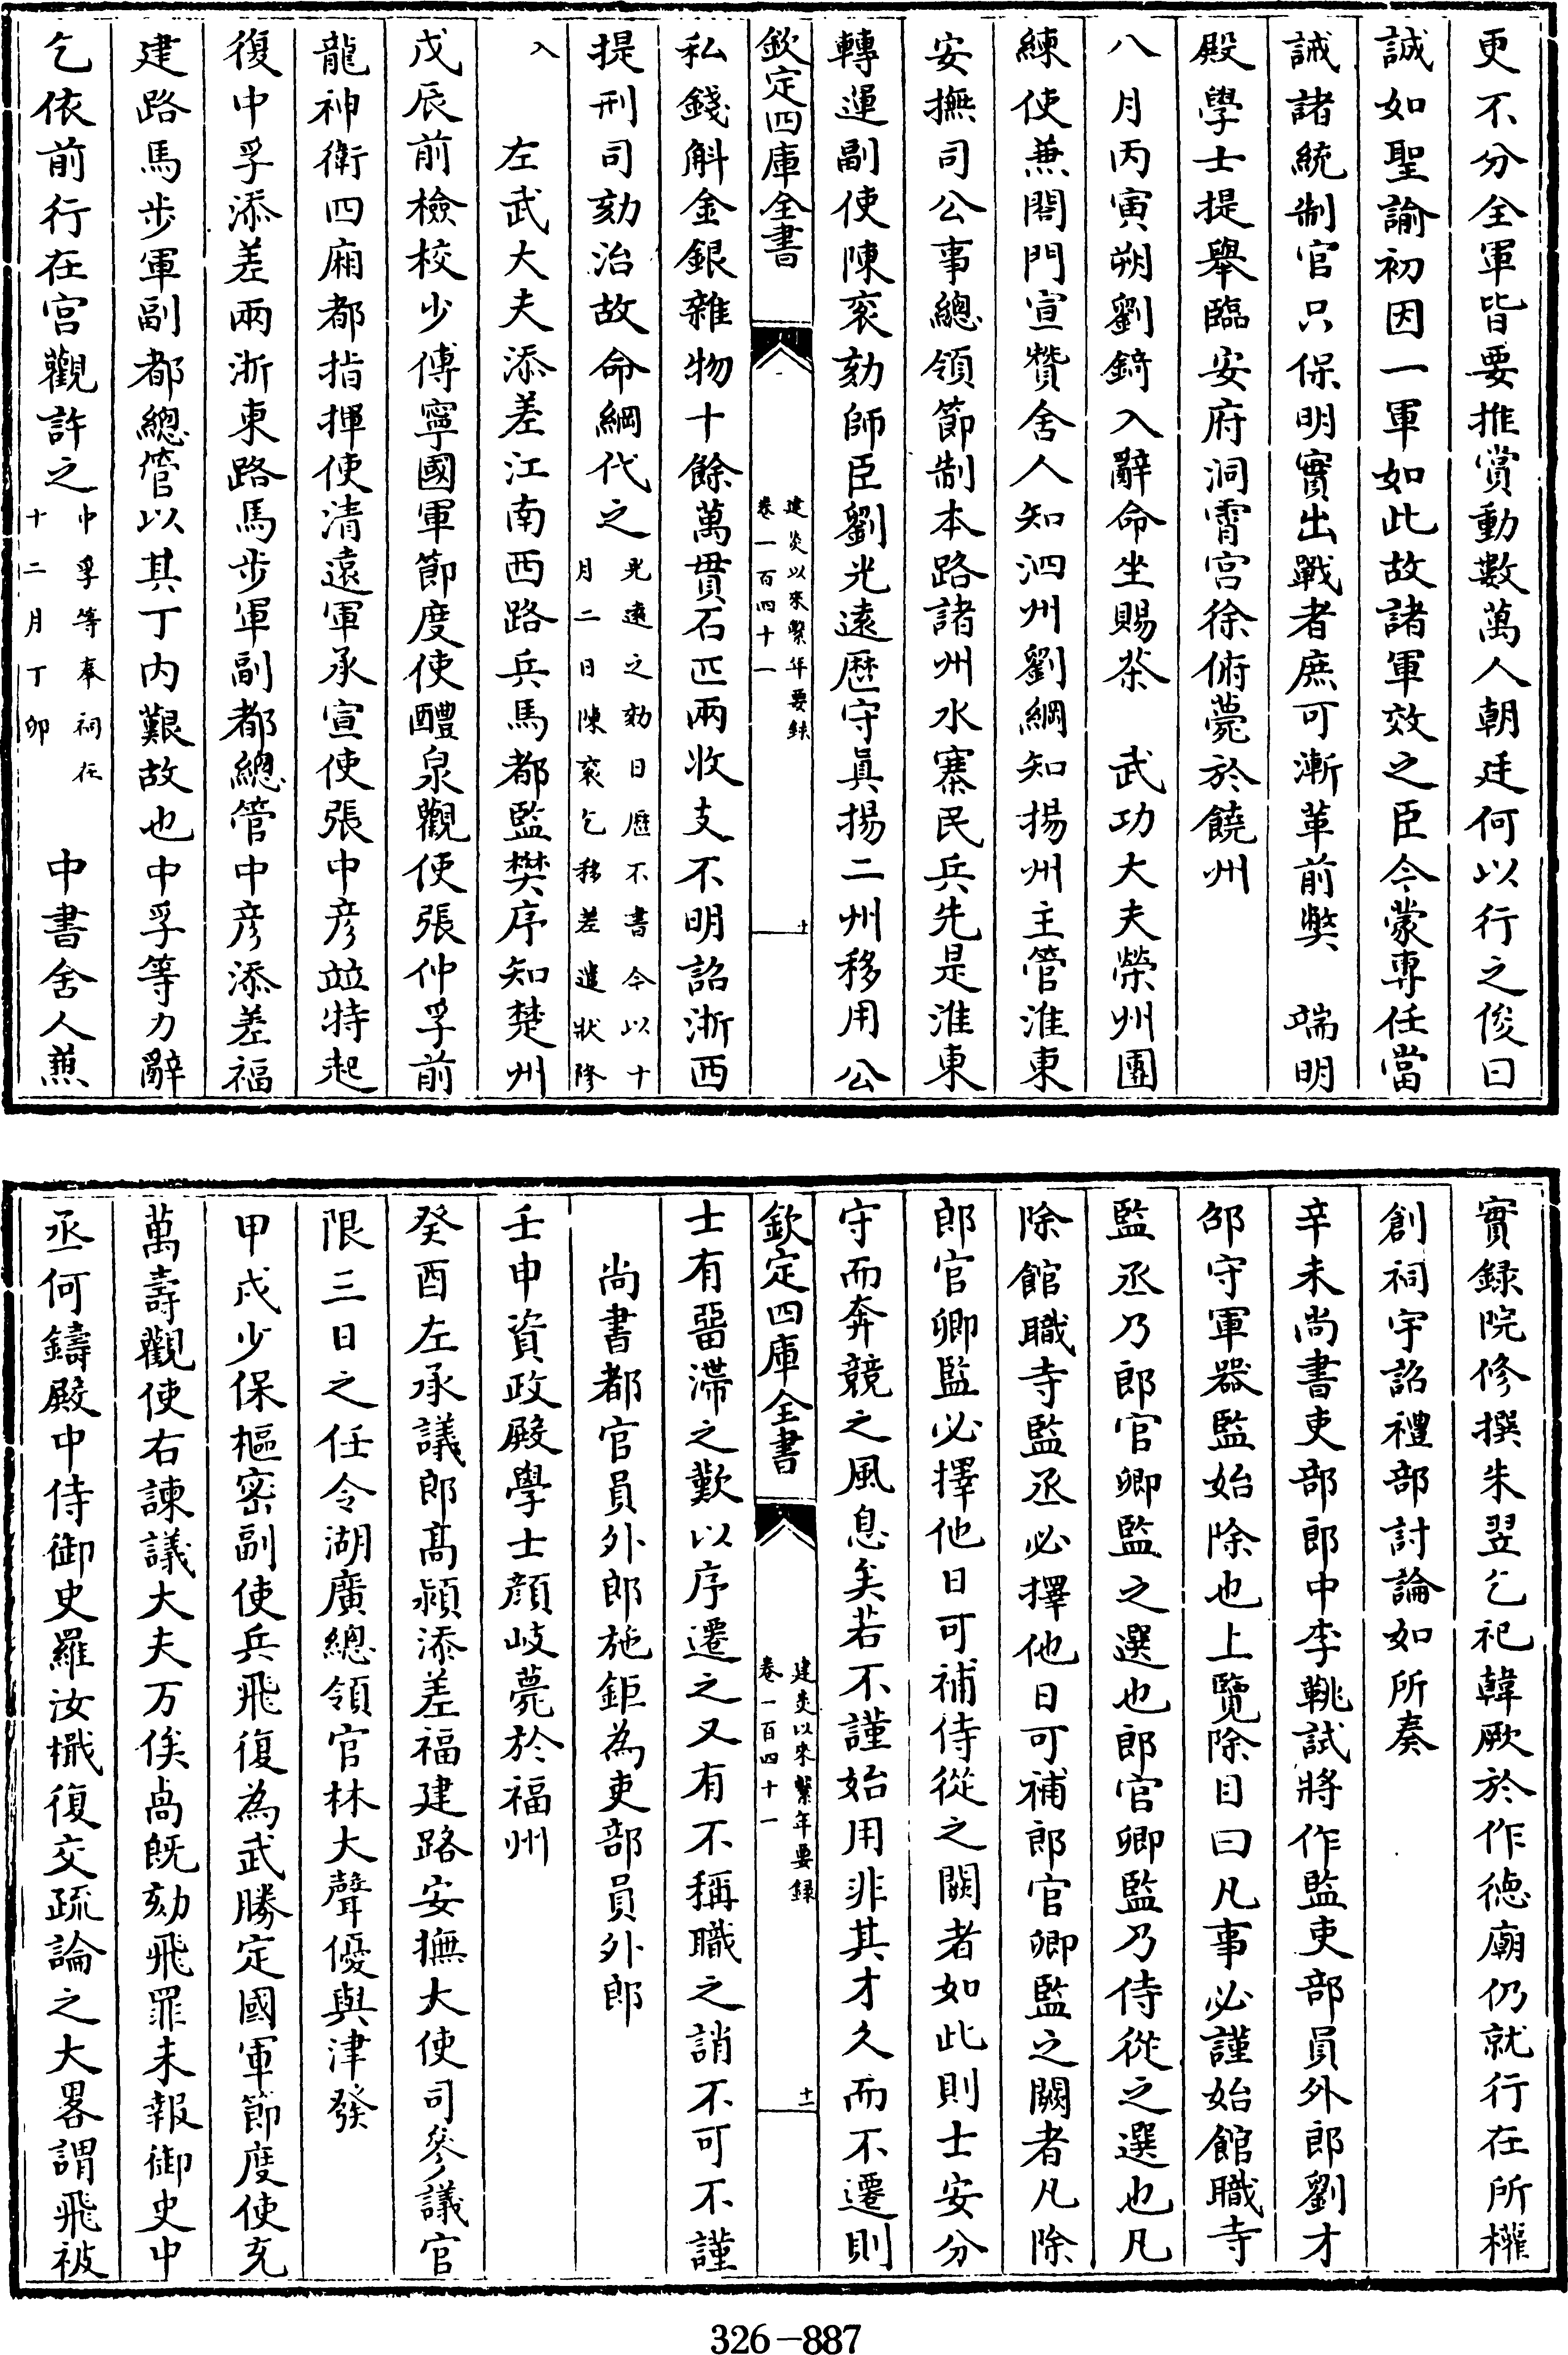 更不分全軍皆要推賞動數萬人朝廷何以行之俊曰
誠如聖諭初因一軍如此故諸軍效之臣今蒙專任當
誡諸統制官只保明實出戰者庶可漸革前弊　端明
殿學士提舉臨安府洞霄宮徐俯薨於饒州
八月丙寅朔劉錡入辭命坐賜茶　武功大夫榮州團
練使兼閤門宣贊舍人知泗州劉綱知揚州主管淮東
安撫司公事總領節制本路諸州水寨民兵先是淮東
轉運副使陳衮劾師臣劉光遠歴守真揚二州移用公
欽定四庫全書
建炎以來繫年要録
卷一百四十一
十
私錢斛金銀雜物十餘萬貫石匹兩收支不明詔浙西
提刑司劾治故命綱代之光遠之劾日歴不書今以十
月二日陳衮乞移差遣狀修
入
左武大夫添差江南西路兵馬都監樊序知楚州
戊辰前檢校少傅寧國軍節度使醴泉觀使張仲孚前
龍神衛四廂都指揮使清遠軍承宣使張中彦竝特起
復中孚添差兩浙東路馬步軍副都總管中彦添差福
建路馬步軍副都總管以其丁内艱故也中孚等力辭
乞依前行在宮觀許之中孚等奉祠在
十二月丁卯
中書舍人兼
實録院修撰朱翌乞祀韓厥於作徳廟仍就行在所權
創祠宇詔禮部討論如所奏
辛未尚書吏部郎中李鞉試將作監吏部員外郎劉才
邵守軍器監始除也上覽除目曰凡事必謹始館職寺
監丞乃郎官卿監之選也郎官卿監乃侍從之選也凡
除館職寺監丞必擇他日可補郎官卿監之闕者凡除
郎官卿監必擇他日可補侍從之闕者如此則士安分
守而奔競之風息矣若不謹始用非其才久而不遷則
欽定四庫全書
建炎以來繫年要録
卷一百四十一
十一
士有畱滯之歎以序遷之又有不稱職之誚不可不謹
尚書都官員外郎施鉅為吏部員外郎
壬申資政殿學士顔岐薨於福州
癸酉左承議郎髙潁添差福建路安撫大使司參議官
限三日之任令湖廣總領官林大聲優與津發
甲戌少保樞密副使兵飛復為武勝定國軍節度使充
萬壽觀使右諫議大夫万俟卨旣劾飛罪未報御史中
丞何鑄殿中侍御史羅汝檝復交疏論之大畧謂飛被
326-887